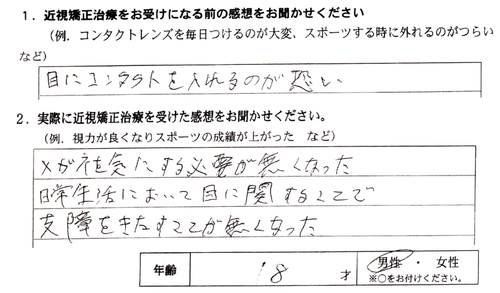 1．近視矯正治療をお受けになる前の感想をお聞かせください
(例．コンタクトレンズを毎日つけるのが大変、スポーツする時に外れるのがつらい
など)
目にコンタクトを入れるのが恐い
2．実際に近視矯正治療を受けた感想をお聞かせください。
(例．視力が良くなりスポーツの成績が上がった　など)
メガネを気にする必要が無くなった
日常生活において目に関することで
支障をきたすことが無くなった
年齢　18　才　男性・女性
※○をお付けください。